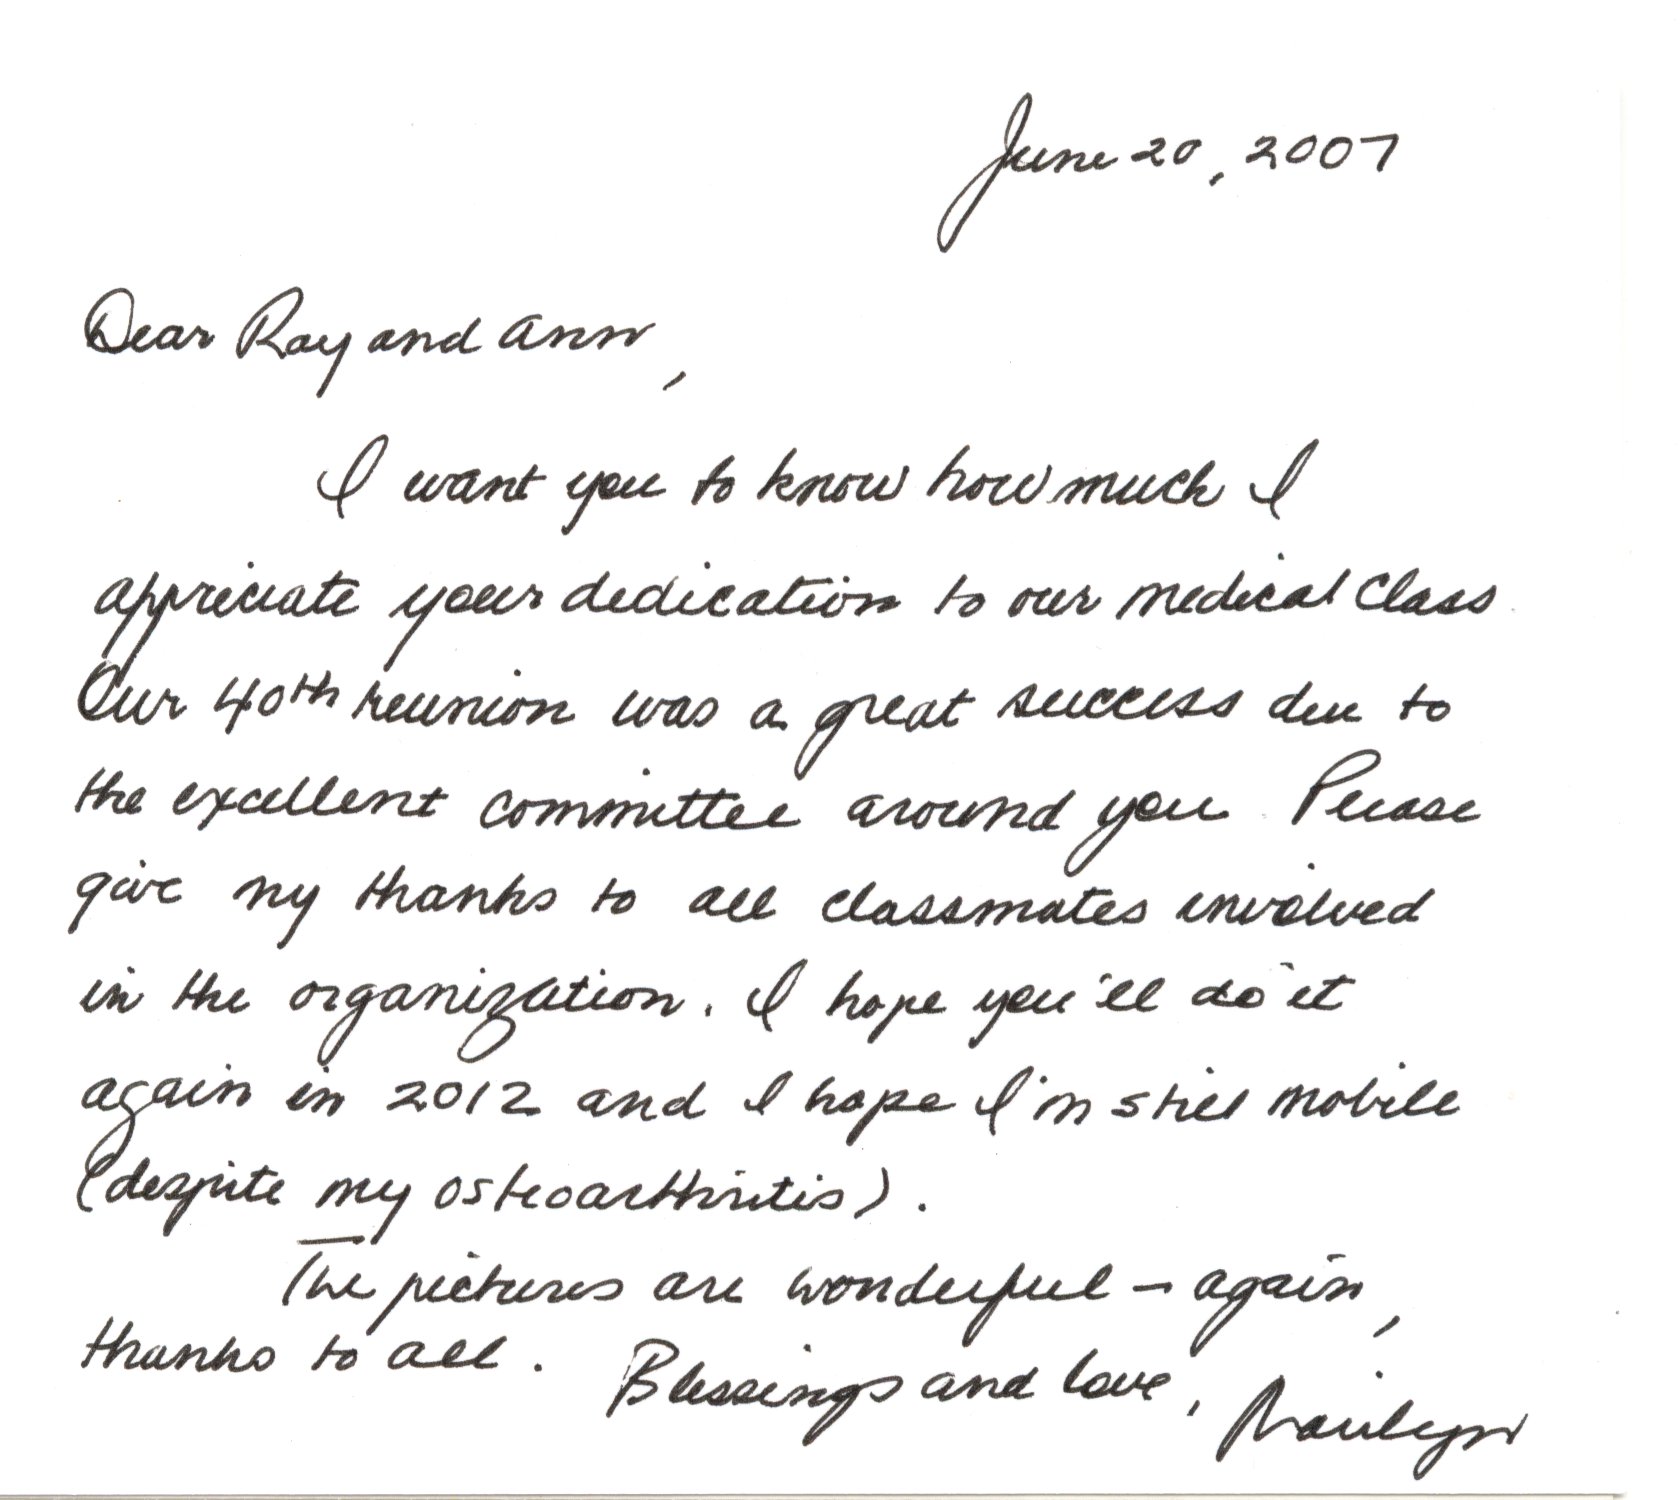 June 20, 2007
Dear Ray and Ann,
I want you to know how much I
appreciate your dedication to our medical class
Our 40th reunion was a great success due to
the excellent committee around you. Please
give my thanks to all classmates involved
in the organization. I hope you'll do it
again in 2012 and I hope I'm still mobile
(despite my osteoarthritis).
The pictures are wonderful – again,
thanks to all. Blessings and love, Marilyn